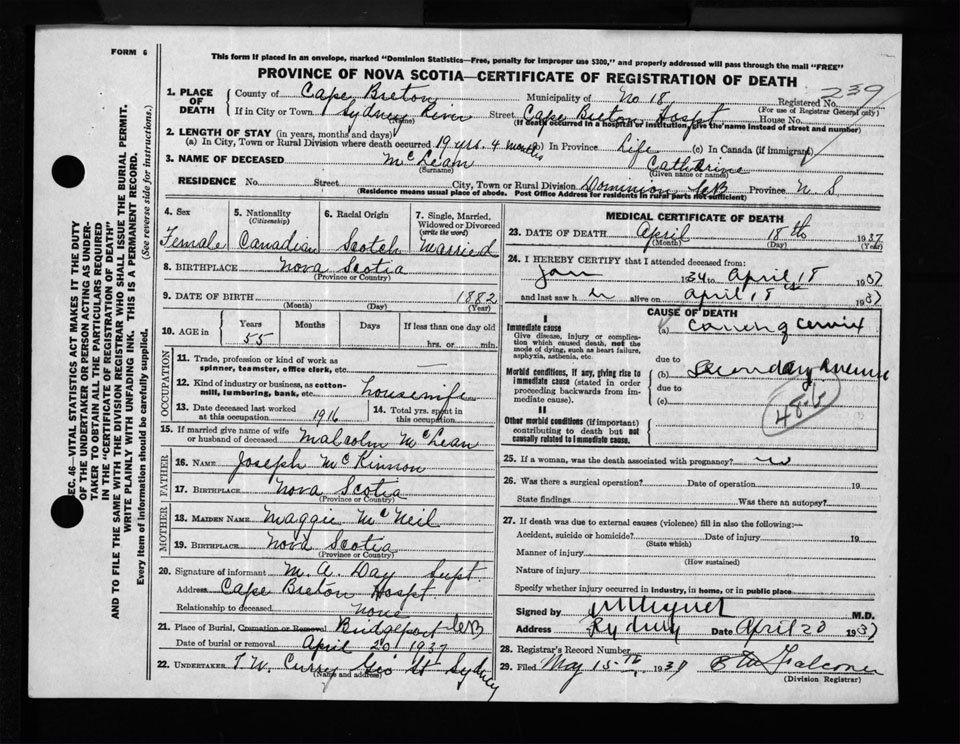 FORM 6
This form if placed in an envelope, marked "Dominion Statistics—Free, penalty for improper use $300," and properly addressed will pass through the mail "FREE"
PROVINCE OF NOVA SCOTIA—CERTIFICATE OF REGISTRATION OF DEATH
239
1. PLACE OF DEATH
County of Cape Breton Municipality of No 18 Registered No.
(For use of Registrar General only)
If in City or Town Sydney River Street Cape Breton Hospt House No.
(Name) (If death occurred in a hospital or institution, give the name instead of street and number)
2. LENGTH OF STAY (in years, months and days)
(a) In City, Town or Rural Division where death occurred 19 yrs. 4 months (b) In Province Life (c) In Canada (if immigrant)
3. NAME OF DECEASED McLean Catherine
(Surname) (Given or names)
RESIDENCE No. Street City, Town or Rural Division Dominion, CB Province N. S
(Residence means usual place of abode. Post Office Address for residents in rural parts not sufficient)
4. Sex
Female
5. Nationality
(Citizenship)
Canadian
6. Racial Origin
Scotch
7. Single, Married, Widowed or Divorced
(write the word)
Married
8. BIRTHPLACE Nova Scotia
(Province or Country)
9. DATE OF BIRTH 1882
(Month) (Day) (Year)
10. AGE in
Years Months Days If less than one day
55 hrs. or min.
OCCUPATION
11. Trade, profession or kind of work as
spinner, teamster, office clerk, etc. —
12. Kind of industry or business, as cotton-
mill, lumbering, bank, etc. housewife
13. Date deceased last worked
at this occupation 1916
14. Total yrs. spent in
this occupation
15. If married give name of wife
or husband of deceased Malcolm McLean
FATHER
16. NAME Joseph McKinnon
17. BIRTHPLACE Nova Scotia
(Province or Country)
MOTHER
18. MAIDEN NAME Maggie McNeil
19. BIRTHPLACE Nova Scotia
(Province or Country)
20. Signature of informant M. A. Day Supt.
Address Cape Breton Hospt
Relationship to deceased None
21. Place of Burial, Cremation or Removal Bridgeport CB
Date of burial or removal April 20 1937
22. UNDERTAKER T. W. Curry Geo St Sydney
(Name and address)
MEDICAL CERTIFICATE OF DEATH
23. DATE OF DEATH April 18th 1937
(Month) (Day) (Year)
24. I HEREBY CERTIFY that I attended deceased from:
Jan 1934 to April 18 1937
and last saw her alive on April 18th 1937
CAUSE OF DEATH
I
Immediate cause
Give disease, injury or complica-
tion which caused death, not the
mode of dying, such as heart failure,
asphyxia, asthenia, etc.
(a) Cancer of cervix
due to
Morbid conditions, if any, giving rise to
immediate cause (stated in order
proceeding backwards from im-
mediate cause).
(b) Secondary Anemia
due to
(c)
48-b
II
Other morbid conditions (if important)
contributing to death but not
causally related to immediate cause.
25. If a woman, was the death associated with pregnancy? no
26. Was there a surgical operation? Date of operation 19
State findings Was there an autopsy?
27. If death was due to external causes (violence) fill in also the following:—
Accident, suicide or homicide? Date of injury 19
(State which)
Manner of injury
(How sustained)
Nature of injury
Specify whether injury occurred in industry, in home, or in public place
Signed by M.D.
Address Sydney Date April 20 1937
28. Registrar's Record Number
29. Filed May 15th 1937 Falconer
(Division Registrar)
SEC. 46—VITAL STATISTICS ACT MAKES IT THE DUTY
OF THE UNDERTAKER OR PERSON ACTING AS UNDER-
TAKER TO OBTAIN ALL THE PARTICULARS REQUIRED
IN THE "CERTIFICATE OF REGISTRATION OF DEATH"
AND TO FILE THE SAME WITH THE DIVISION REGISTRAR WHO SHALL ISSUE THE BURIAL PERMIT.
WRITE PLAINLY WITH UNFADING INK. THIS IS A PERMANENT RECORD.
Every item of information should be carefully supplied. (See reverse side for instructions.)